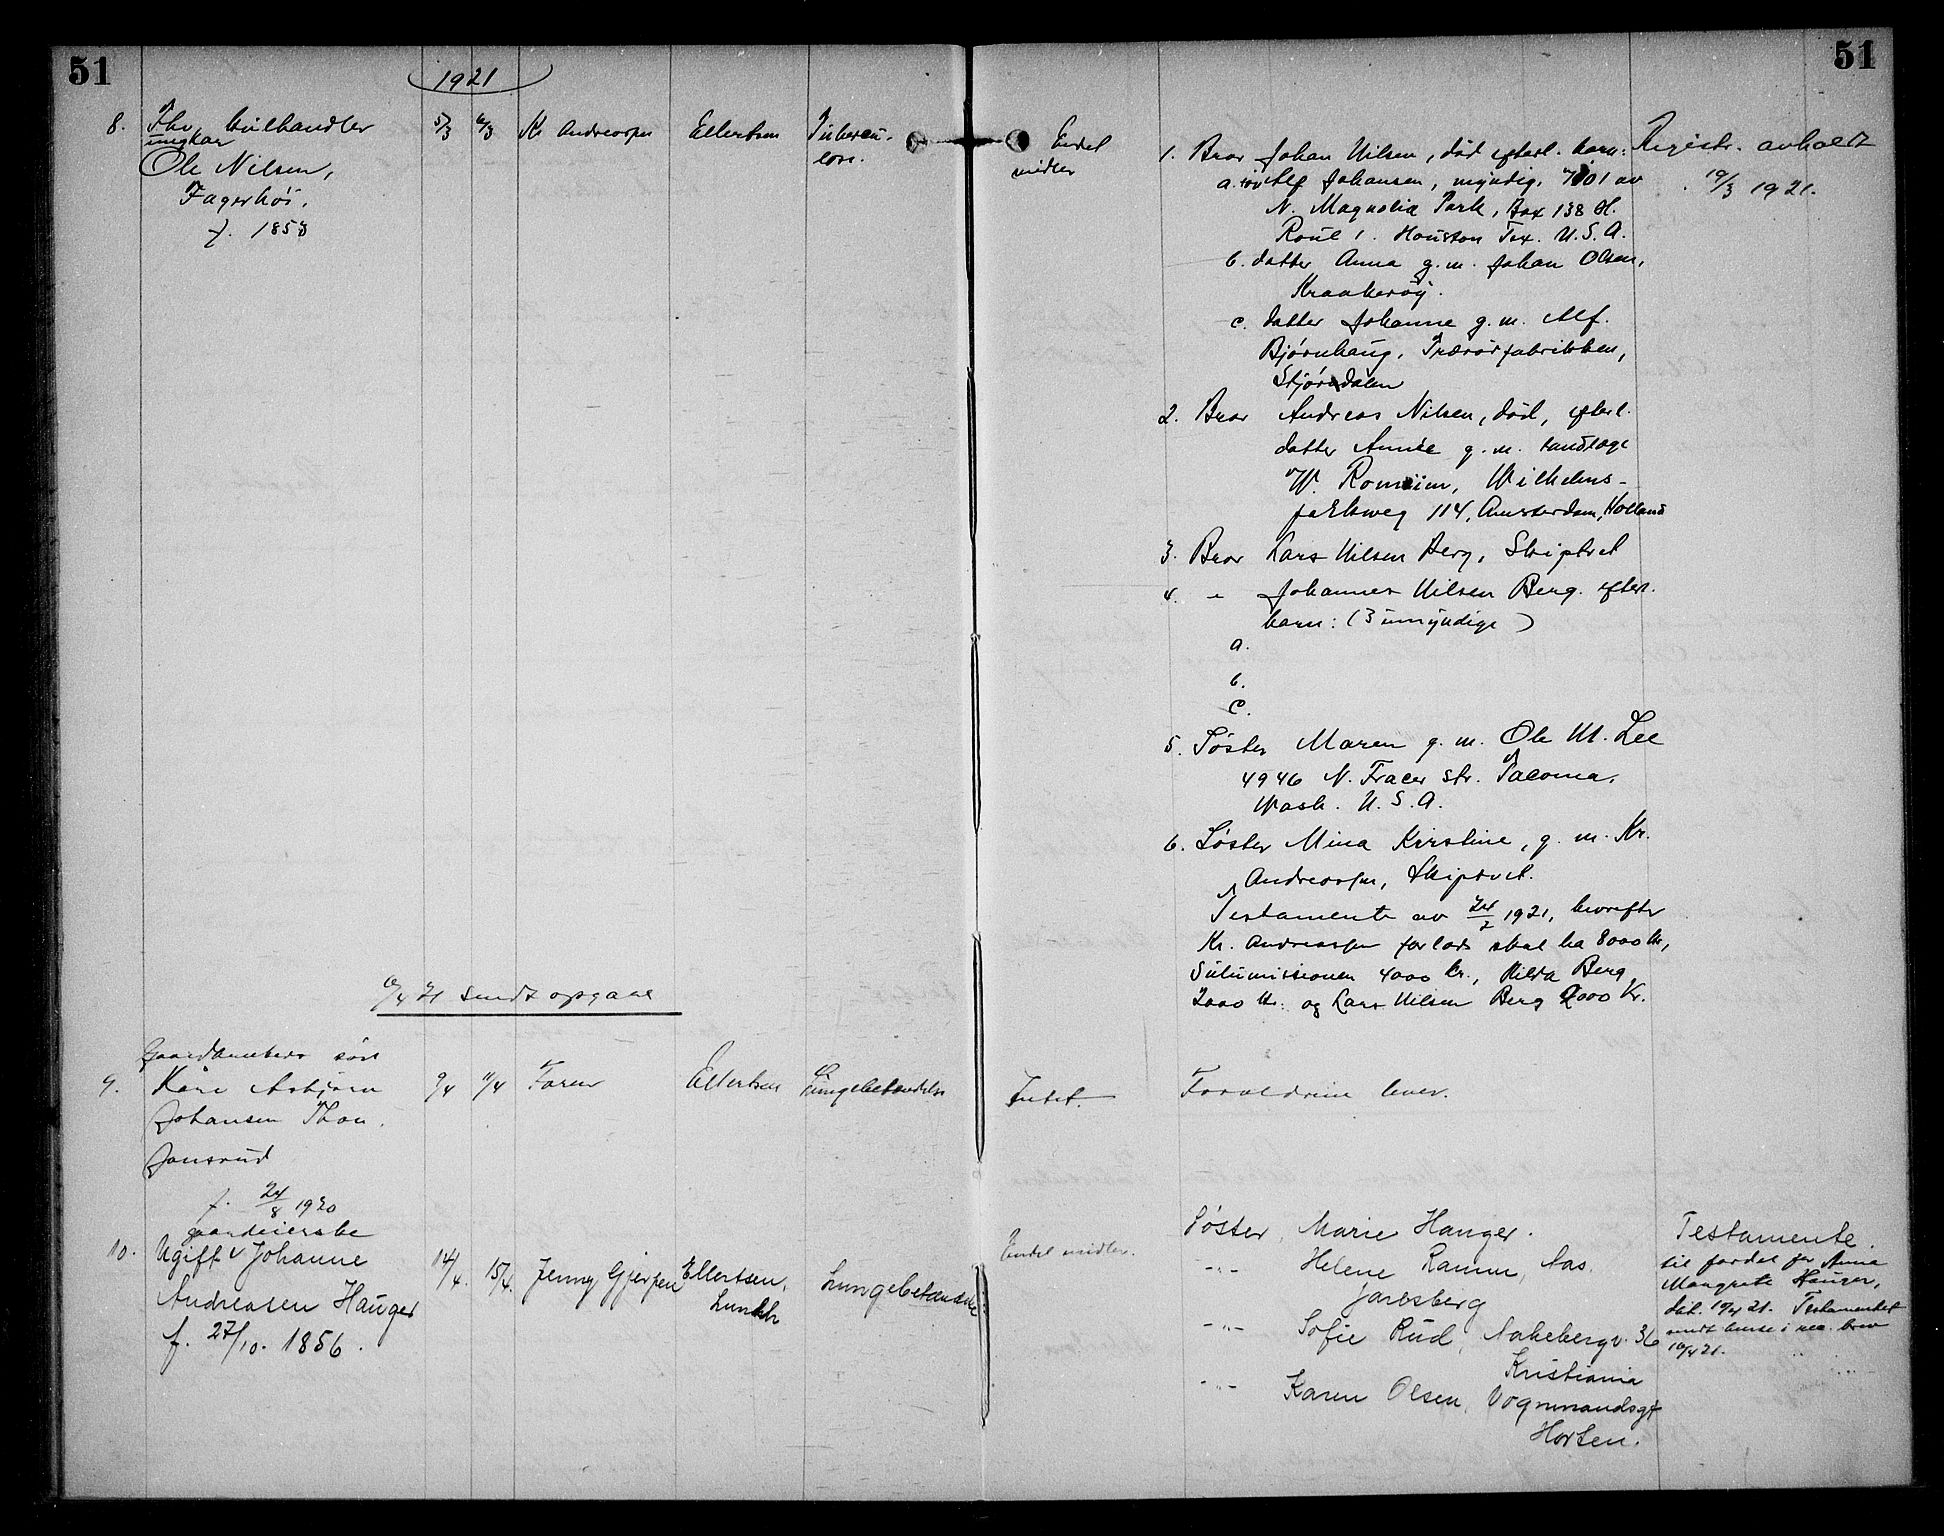 51
1921
8. Fhv. hvilhandler
ungkar
Ole Nilsen,
Fagerhøi.
f. 1853
5/3 6/3 Kr Andreassen Ellertsen Tuberculose.
6/4 21 Sendt opgave
Gaardarbeiders søn
9. Kåre Asbjørn
Johansen Thon.
Jonsrud
f. 24/8 1920
9/4 11/4 Faren Ellertsen Lungebetændelse
gaardeierske
10. Ugift Johanne
Andreasen Hauger
f. 27/10. 1856.
14/4. 15/4. Jenny Gjerpen Ellertsen, Lungebetændelse
51
Endel
midler
1. Bror Johan Nilsen, død efterl. barn:
a. søn Alf Johansen, myndig. 7801 av
N. Magnolia Park, Box 138 H.
Route 1. Houston Tex. U.S.A.
b. datter Anna g.m. Johan Olsen,
Kraakerøy.
c. datter Johanne g.m. Alf.
Bjørnhaug, Trærørfabrikken,
Stjørdalen
2. Bror Andreas Nilsen, død, efterl.
datter Annie g.m. tandlæge
W. Wilhelms-
parkweg 114, Amsterdam, Holland
3. Bror Lars Nilsen Berg, Skiptvet
4. - Johannes Nilsen Berg. efterl.
barn: (3 umyndige)
a.
b.
c.
5. Søster Maren g.m. Ole M. Lee
4946 N. Fracer str. Tacoma,
Wash. U.S.A.
6. Søster Mina Kirstine, g.m. Kr.
Andreassen, Skiptvet.
Testamente av 24/2 1921, hvorefter
Kr. Andreassen forlods skal ha 8000 kr,
Sulumissionen 4000 kr., Hilda Berg
2000 kr. og Lars Nilsen Berg 2000 Kr.
Registr. avholdt
19/3 1921.
Intet. Forældrene lever.
Endel midler.
Søster, Marie Hauger.
-"- Helene Ramm, Aas.
Jarlsberg
-"- Sofie Rud, Nakebergv. 36
Kristiania
-"- Karen Olsen, Vognmandsgt
Horten.
Testamente
til fordel for Anna
Margrete Hauger,
dat. 10/4 21. Testamentet
sendt i rec. brev